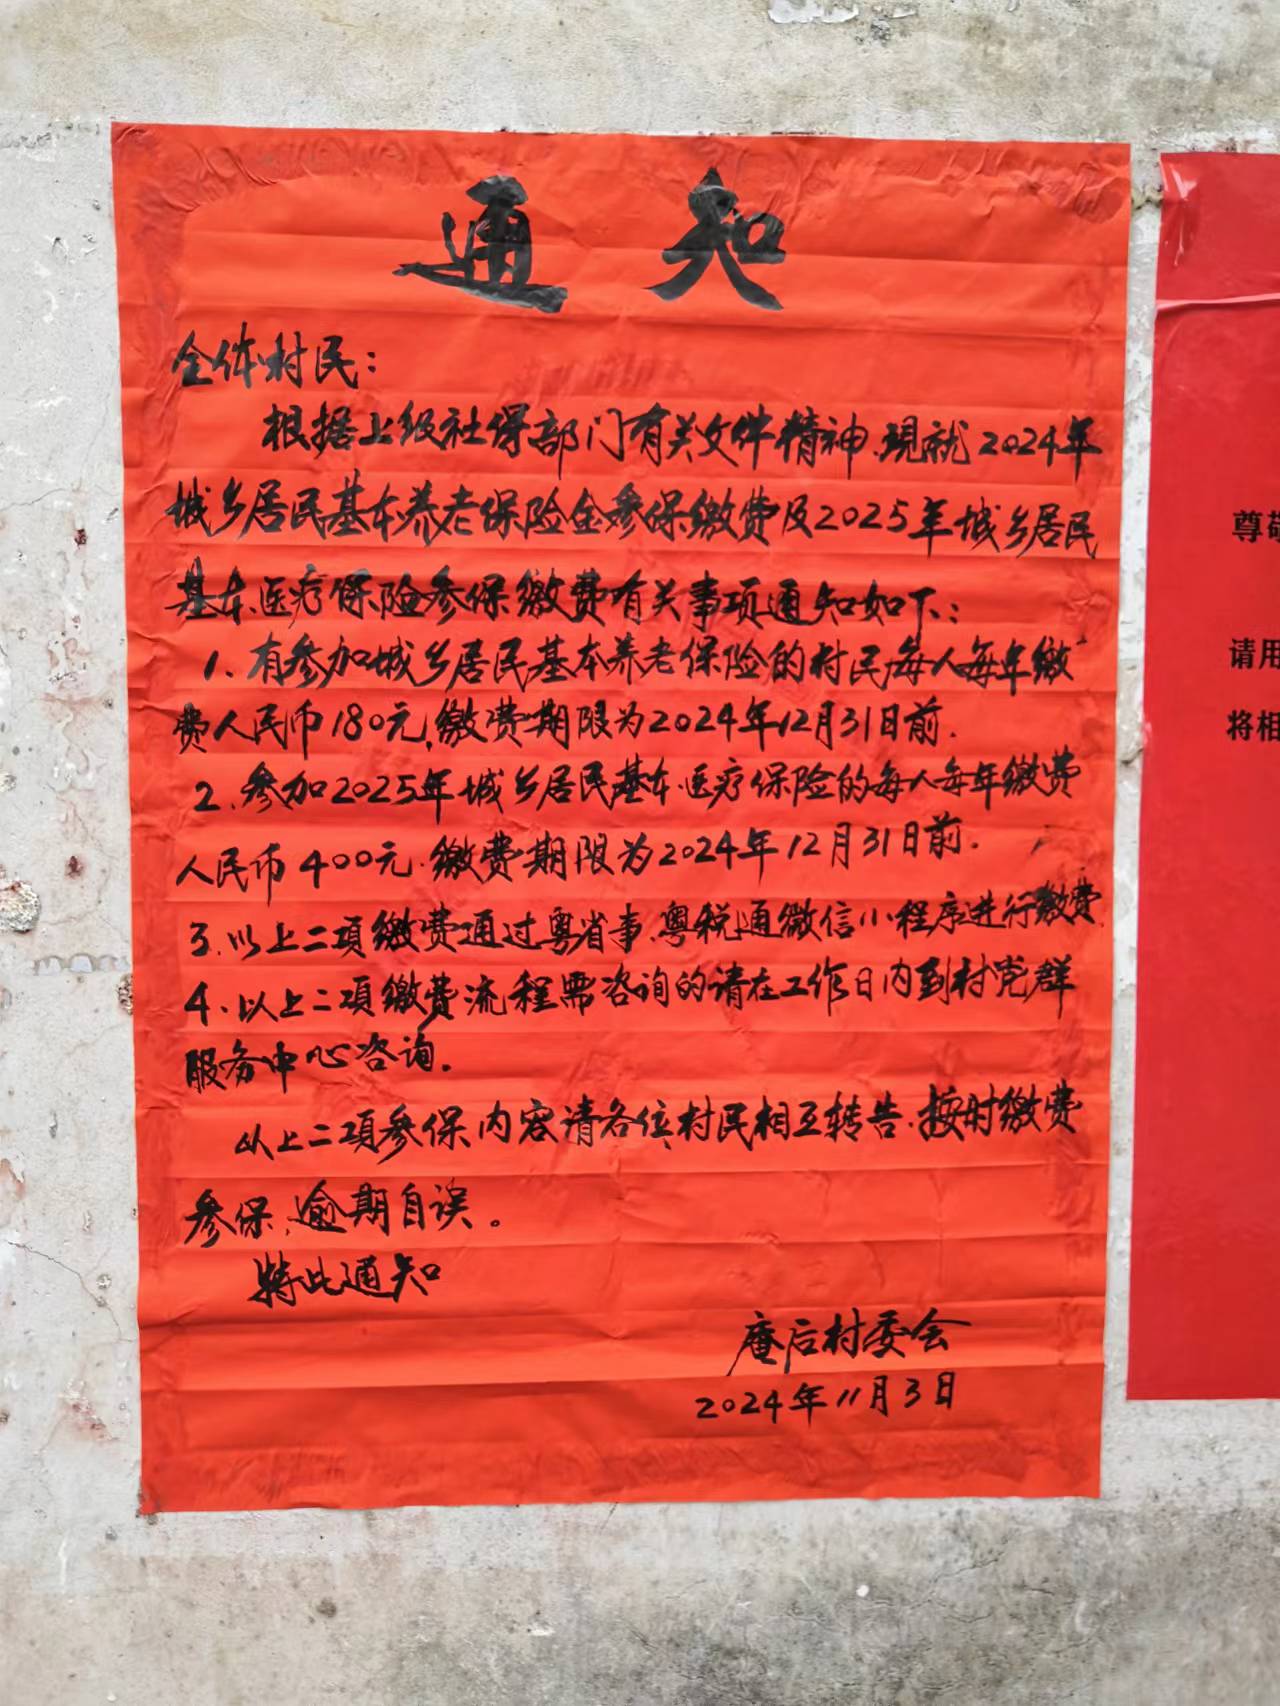 通知
全体村民：
根据上级社保部门有关文件精神、现就2024年
城乡居民基本养老保险金参保缴费及2025年城乡居民
基本医疗保险参保缴费有关事项通知如下：
1、有参加城乡居民基本养老保险的村民每人每年缴
费人民币180元，缴费期限为2024年12月31日前.
2、参加2025年城乡居民基本医疗保险的每人每年缴费
人民币400元.缴费期限为2024年12月31日前.
3、以上二项缴费通过粤省事、粤税通微信小程序进行缴费.
4、以上二项缴费流程需咨询的请在工作日内到村党群
服务中心咨询.
以上二项参保内容请各位村民相互转告.按时缴费
参保、逾期自误。
特此通知
庵后村委会
2024年11月3日
尊敬
请用
将相